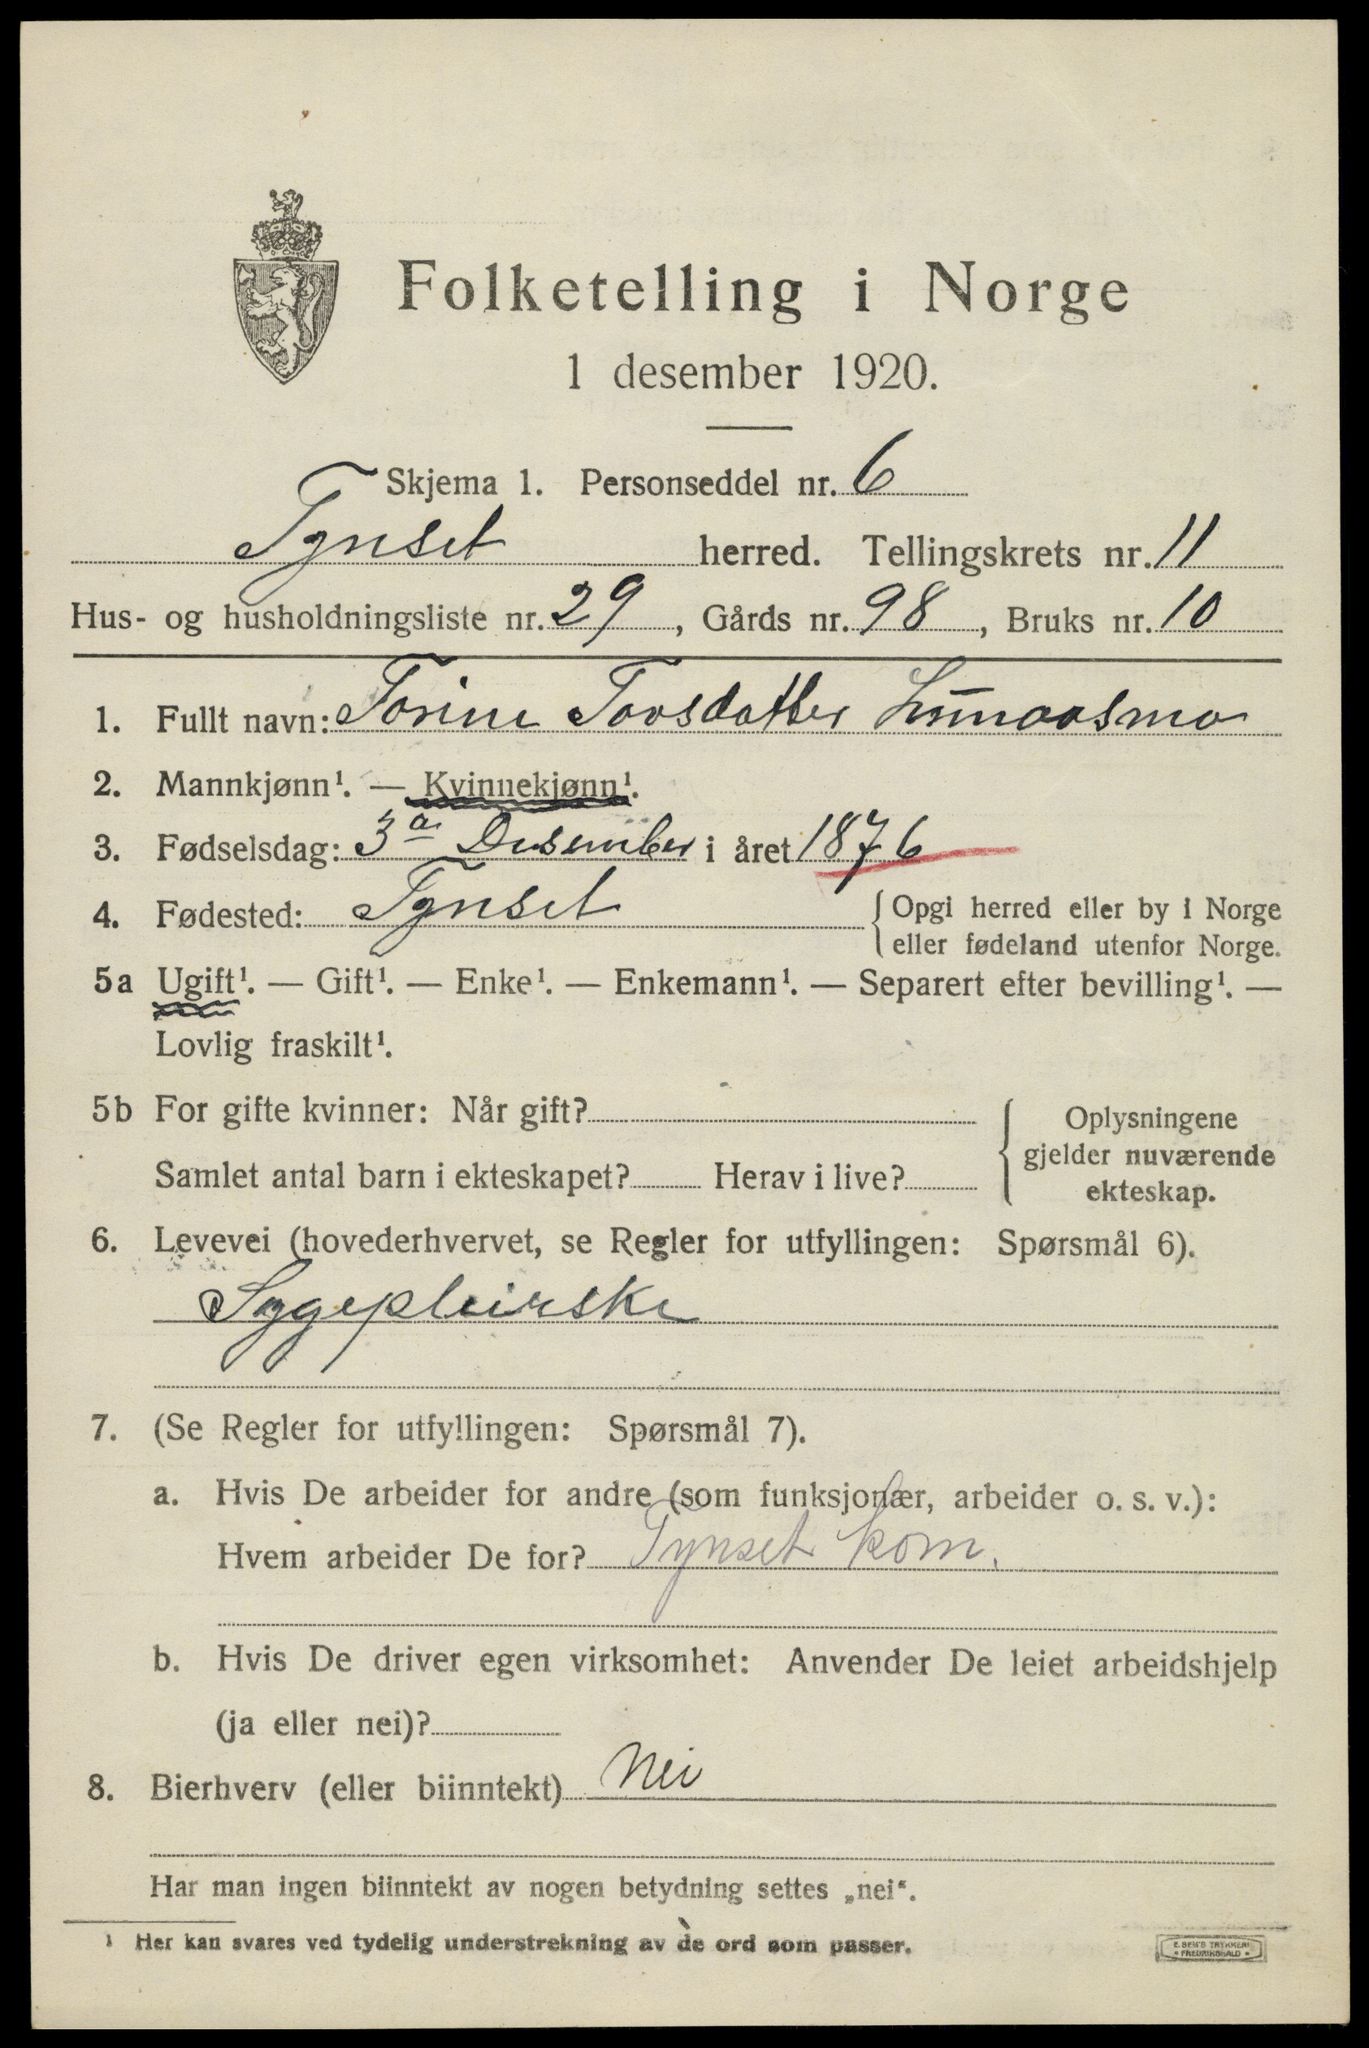 Folketelling i Norge
1 desember 1920.
Skjema 1. Personseddel nr. 6
Tynset herred. Tellingskrets nr. 11
Hus- og husholdningsliste nr. 29, Gårds nr. 98, Bruks nr. 10
1. Fullt navn: Torine Torsdatter
2. Mannkjønn¹. — Kvinnekjønn¹.
3. Fødselsdag: 3 Desember i året 1876
4. Fødested: Tynset {Opgi herred eller by i Norge
eller fødeland utenfor Norge.
5a Ugift¹. — Gift¹. — Enke¹. — Enkemann¹. — Separert efter bevilling¹. —
Lovlig fraskilt¹.
5b For gifte kvinner: Når gift?
Samlet antal barn i ekteskapet? Herav i live?
{Oplysningene
gjelder nuværende
ekteskap.
6. Levevei (hovederhvervet, se Regler for utfyllingen: Spørsmål 6).
Sygepleirske
7. (Se Regler for utfyllingen: Spørsmål 7).
a. Hvis De arbeider for andre (som funksjonær, arbeider o. s. v.):
Hvem arbeider De for? Tynset kom.
b. Hvis De driver egen virksomhet: Anvender De leiet arbeidshjelp
(ja eller nei)?
8. Bierhverv (eller biinntekt) Nei
Har man ingen biinntekt av nogen betydning settes „nei“.
¹ Her kan svares ved tydelig understrekning av de ord som passer.
E. SEM'S TRYKKERI
• FREDRIKSHALD •